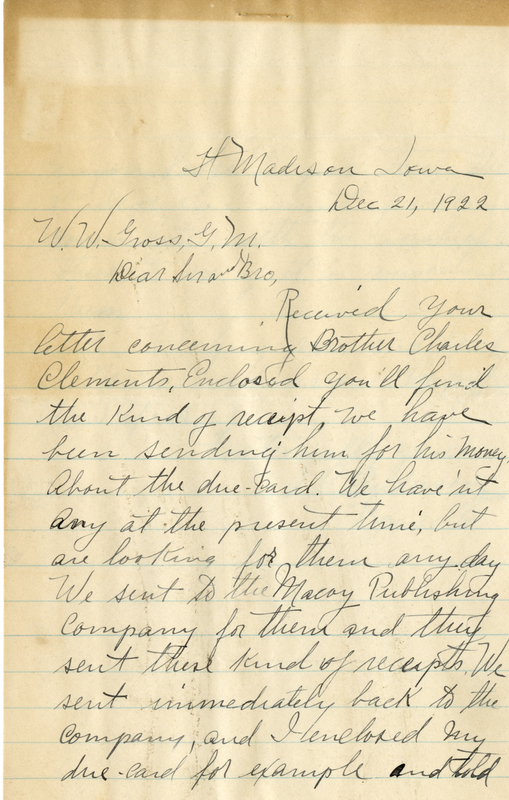 Ft Madison Iowa
Dec 21, 1922
W. W. Gross, G. M.
Dear Sir and Bro,
Received your
letter concerning Brother Charles
Clements, Enclosed you'll find
the kind of receipt, we have
been sending him for his money.
About the due-card. We have'nt
any at the present time, but
are looking for them any day
We sent to the Macoy Publishing
Company for them and they
sent these kind of receipts. We
sent immediately back to the
company, and I enclosed my
due-card for example and told